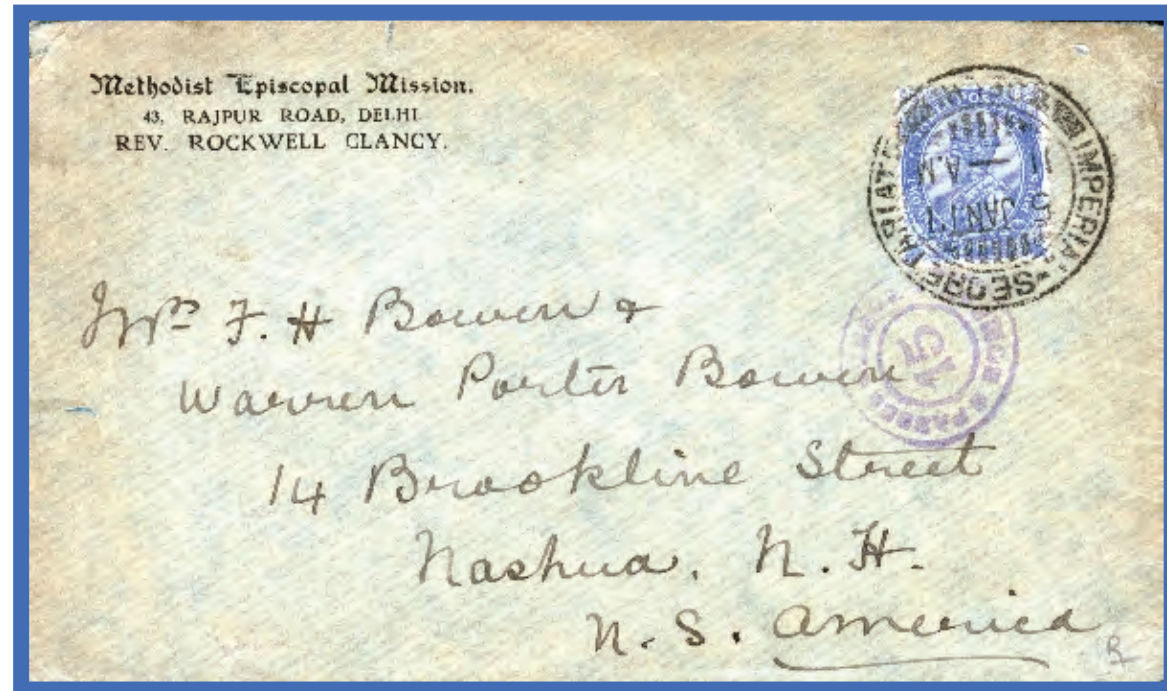 Methodist Episcopal Mission.
43, RAJPUR ROAD, DELHI
REV. ROCKWELL CLANCY.
IMPERIAL SECRETARIAT
11 — A.M
5 JAN.11
PASSED
15
Mrs F. H Bowen &
Warren Porter Bowen
14 Brookline Street
Nashua, N. H.
U. S. America
R